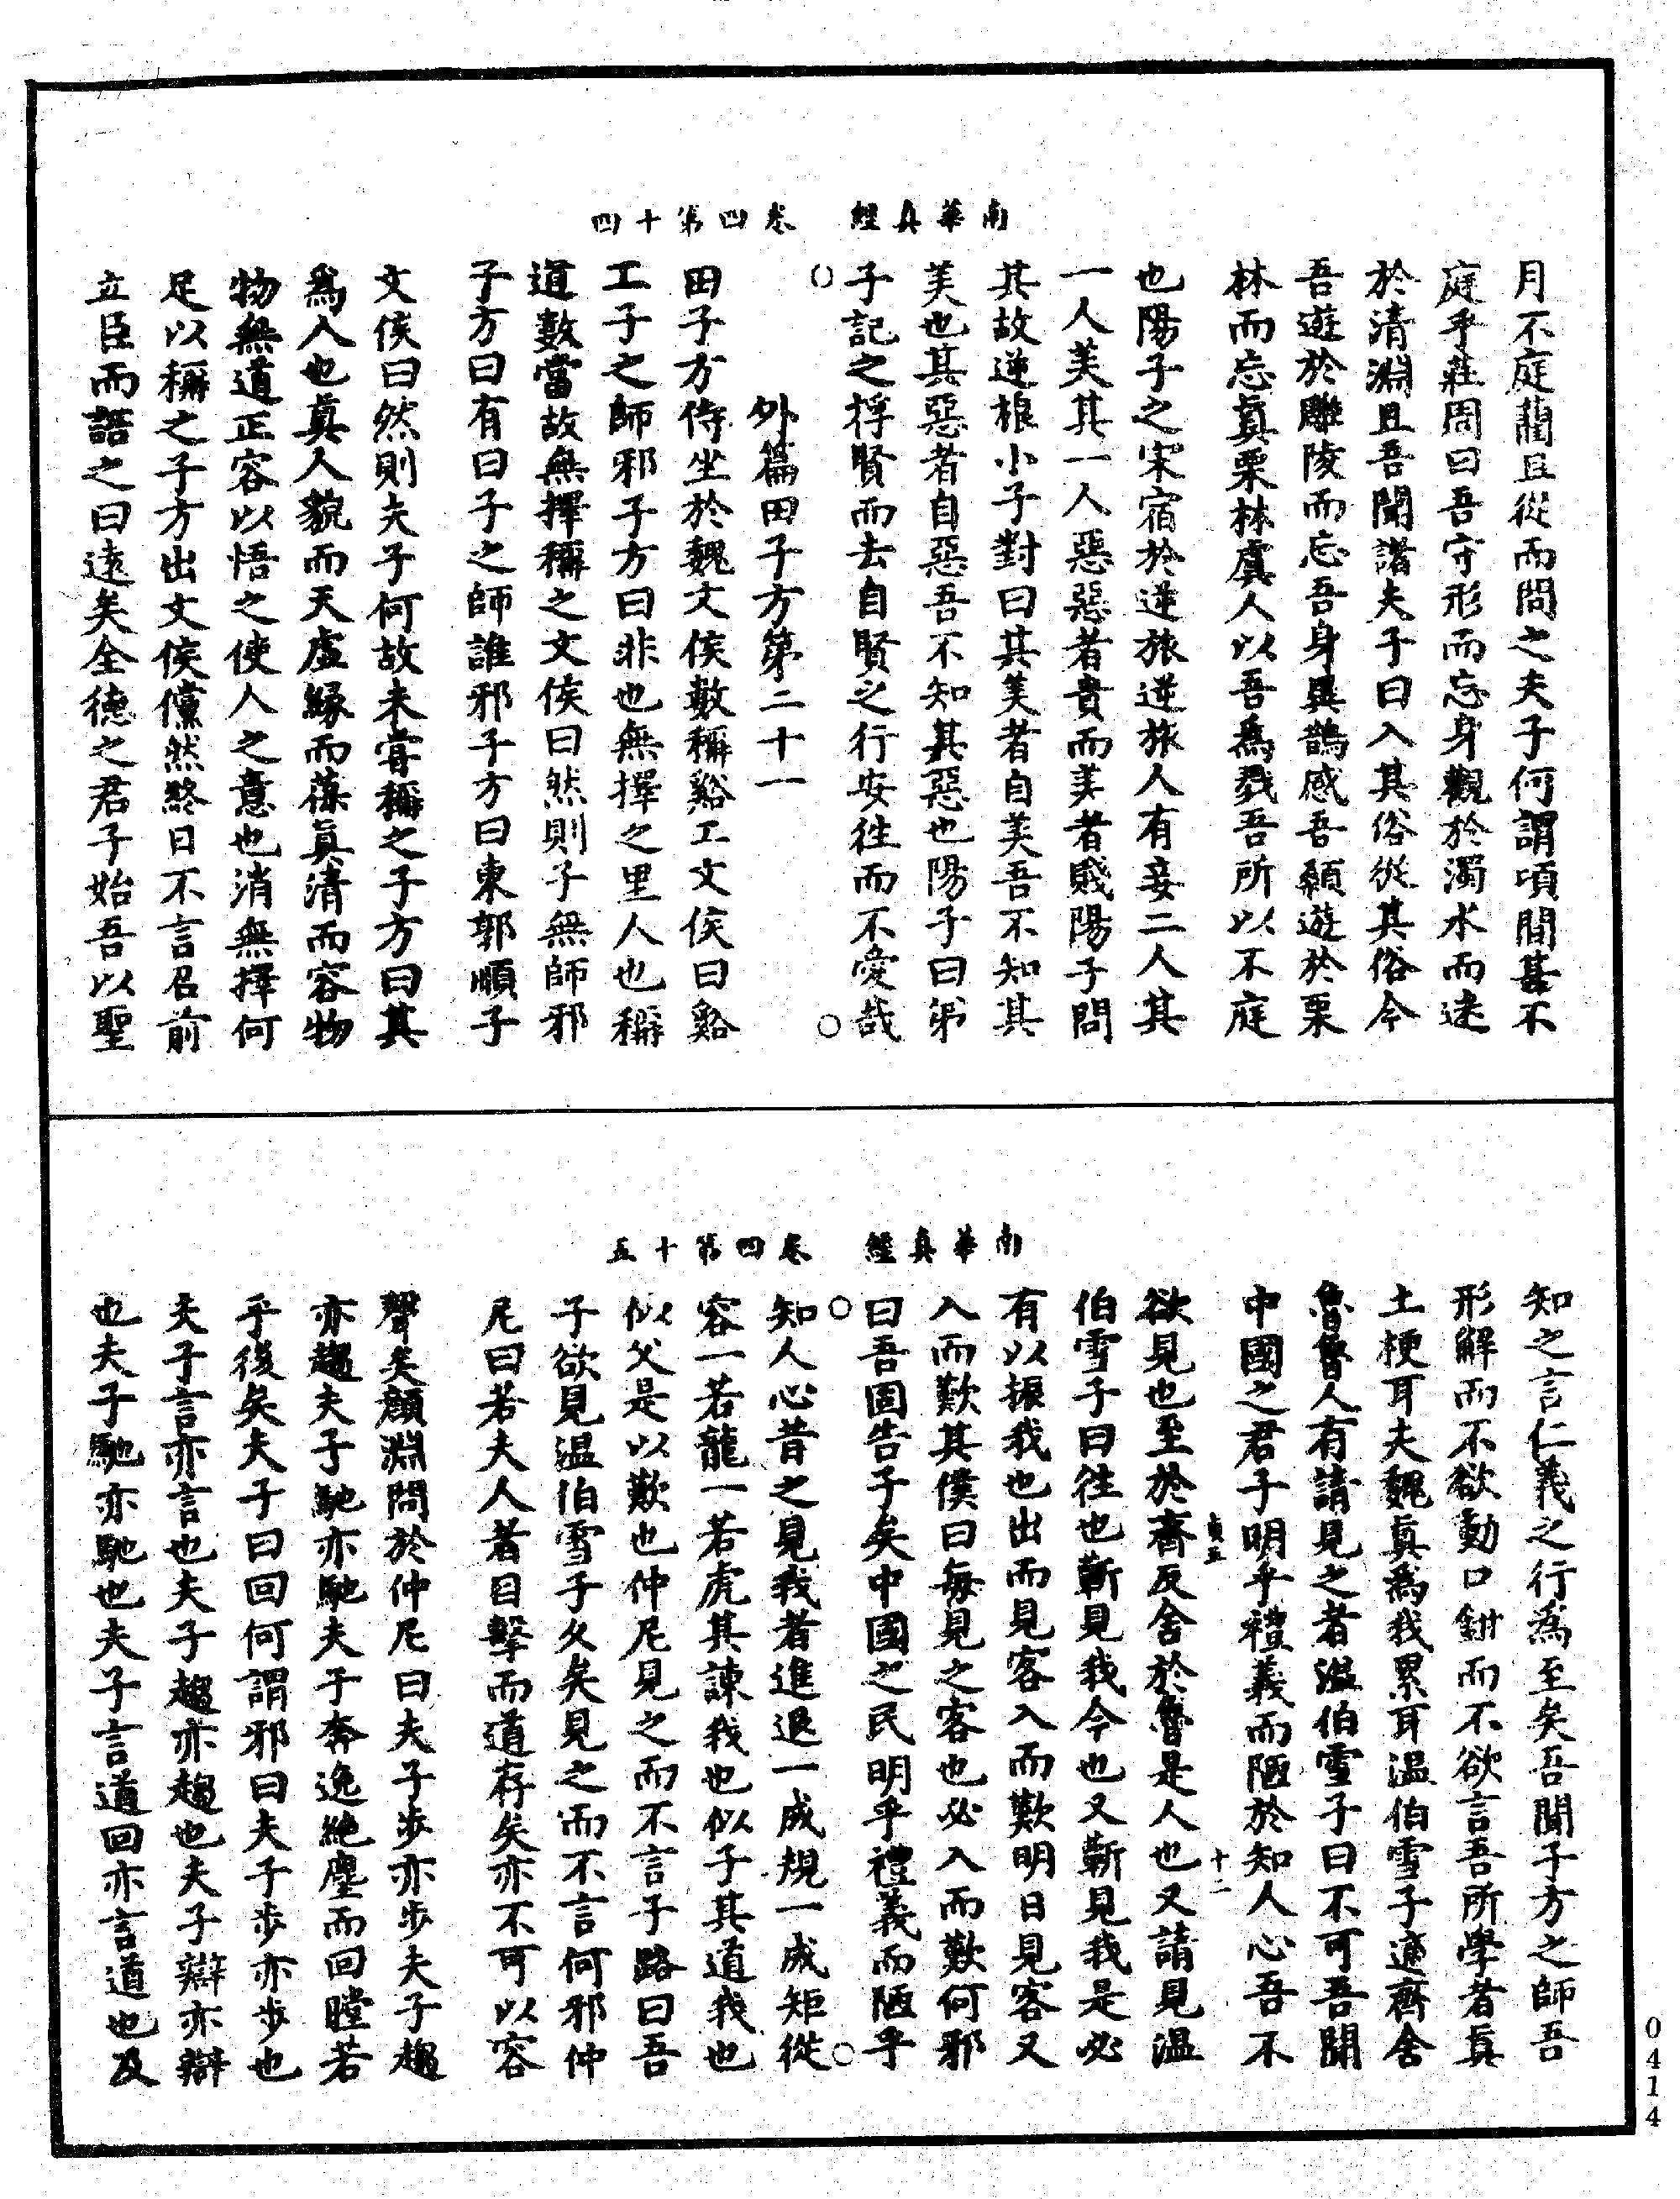 南華真經　卷四第十四
月不庭藺且從而問之夫子何謂頃間甚不
庭乎莊周曰吾守形而忘身觀於濁水而迷
於清淵且吾聞諸夫子曰入其俗從其俗今
吾遊於雕陵而忘吾身異鵲感吾顙遊於栗
林而忘真栗林虞人以吾爲戮吾所以不庭
也陽子之宋宿於逆旅逆旅人有妾二人其
一人美其一人惡惡者貴而美者賤陽子問
其故逆旅小子對曰其美者自美吾不知其
美也其惡者自惡吾不知其惡也陽子曰弟
子記之捊賢而去自賢之行安往而不愛哉
○　○
外篇田子方第二十一
田子方侍坐於魏文侯數稱谿工文侯曰谿
工子之師邪子方曰非也無擇之里人也稱
道數當故無擇稱之文侯曰然則子無師邪
子方曰有曰子之師誰邪子方曰東郭順子
文侯曰然則夫子何故未甞稱之子方曰其
爲人也真人貌而天虛緣而葆真清而容物
物無道正容以悟之使人之意也消無擇何
足以稱之子方出文侯儻然終日不言召前
立臣而語之曰遠矣全德之君子始吾以聖
南華真經　卷四第十五
知之言仁義之行為至矣吾聞子方之師吾
形解而不欲動口鉗而不欲言吾所學者真
土梗耳夫魏真爲我累耳温伯雪子適齊舍
魯魯人有請見之者温伯雪子曰不可吾聞
中國之君子明乎禮義而陋於知人心吾不
貞五　十二
欲見也至於齊反舍於魯是人也又請見温
伯雪子曰往也蘄見我今也又蘄見我是必
有以振我也出而見客入而歎明日見客又
入而歎其僕曰每見之客也必入而歎何邪
曰吾固告子矣中國之民明乎禮義而陋乎
○　○
知人心昔之見我者進退一成規一成矩從
容一若龍一若虎其諫我也似子其道我也
似父是以歎也仲尼見之而不言子路曰吾
子欲見温伯雪子久矣見之而不言何邪仲
尼曰若夫人者目擊而道存矣亦不可以容
聲矣顏淵問於仲尼曰夫子步亦步夫子趨
亦趨夫子馳亦馳夫子奔逸絶塵而回瞠若
乎後矣夫子曰回何謂邪曰夫子步亦步也
夫子言亦言也夫子趨亦趨也夫子辯亦辯
也夫子馳亦馳也夫子言道回亦言道也及
0414